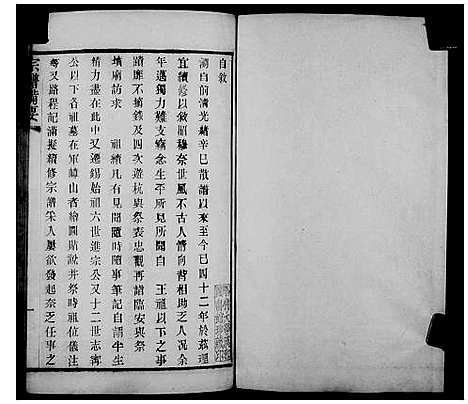 自敘
溯自前清光緒辛巳散譜以來至今已四十二年於茲理
宜續修以敘昭穆奈世風不古人情向背相助乏人况余
年邁獨力難支竊念生平所見所聞自 王祖以下之事
蹟靡不摘錄及四次遊杭與祭表忠觀再謁臨安與祭
墳廟訪求 祖績凡有見聞隨時隨事筆記自謂半生
精力盡在此中又遷錫始祖六世進宗公又十二世志寗
公以下各祖墓在軍嶂山者繪圖貼說并祭時祖位儀注
等又路程記滿擬續修宗譜宋人屢欲發起奈乏任事之
宗譜備要